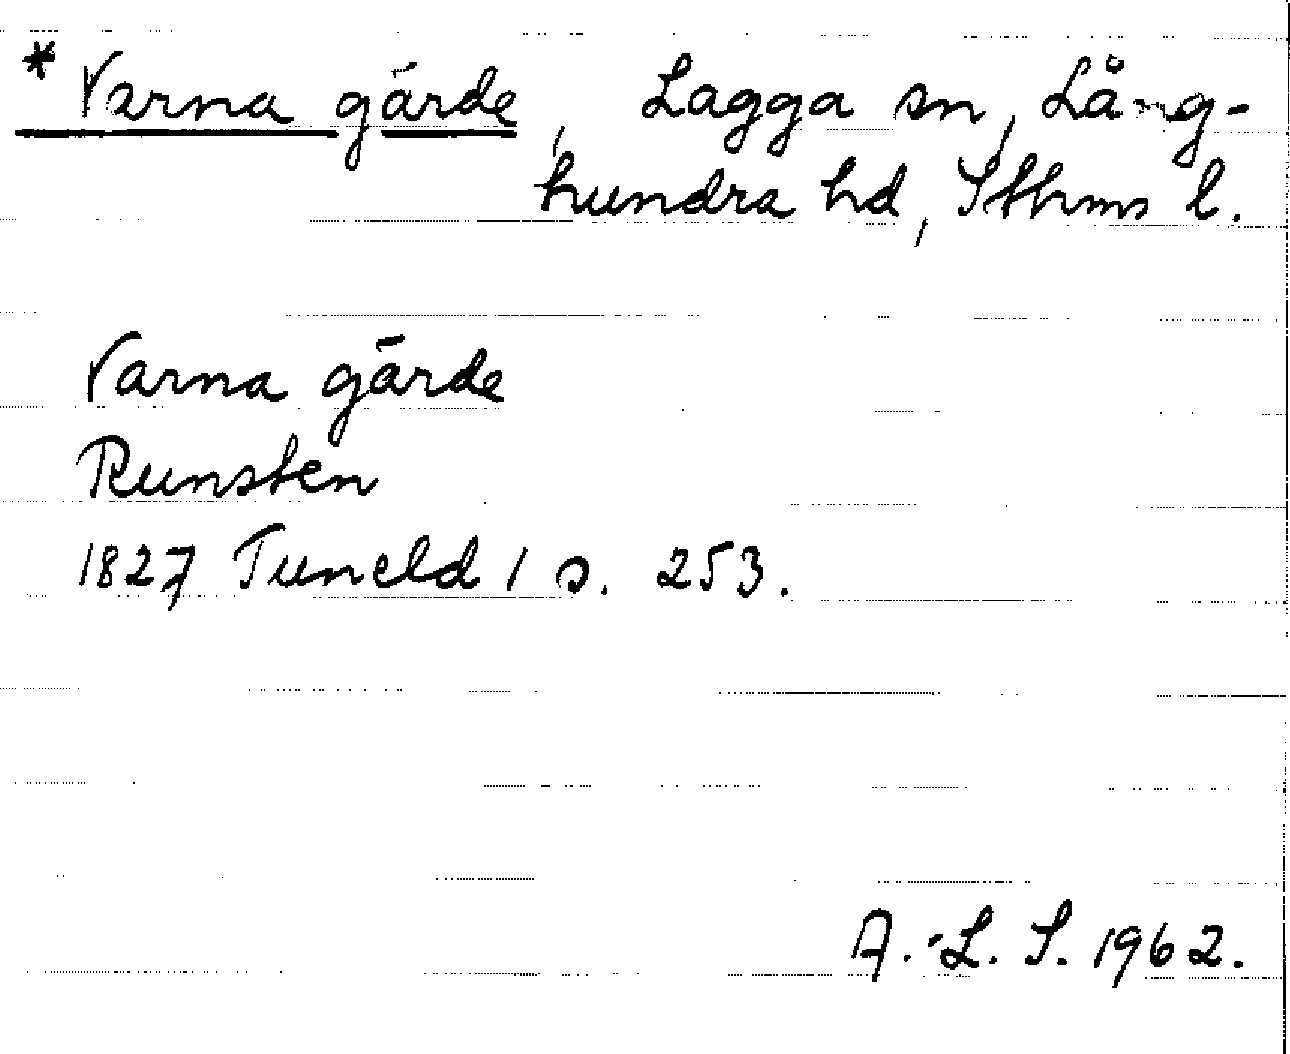 * Varna gärde, Lagga sn, Lång-
hundra hd, Sthms l.
Varna gärde
Runsten
1827 Tuneld 1 s. 253.
A.-L. S. 1962.